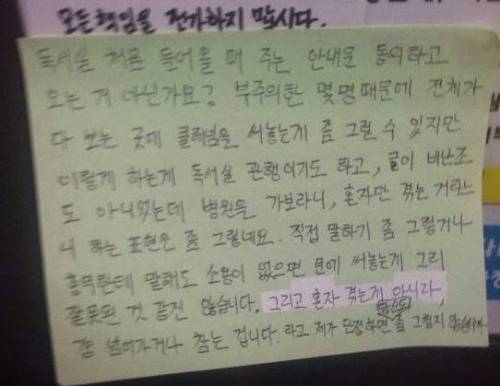 모든책임을 전가하지 맙시다.
독서실 처음 들어올 때 주는 안내문 동의하고
오는 거 아닌가요? 부주의한 몇명때문에 전체가
다 보는 곳에 클레임을 써놓는게 좀 그럴 수 있지만
이렇게 하는게 독서실 관행이기도 하고, 글이 비난조
도 아니었는데 병원을 가보라니, 혼자만 겪는 거라느
니 하는 표현은 좀 그렇네요. 직접 말하기 좀 그렇거나
총무한테 말해도 소용이 없으면 문에 써놓는게 그리
잘못된 것 같진 않습니다. 그리고 혼자 겪는게 아니라,
걍 넘어가거나 참는 겁니다. 라고 제가 단정하면 좀 그렇지 않습니까